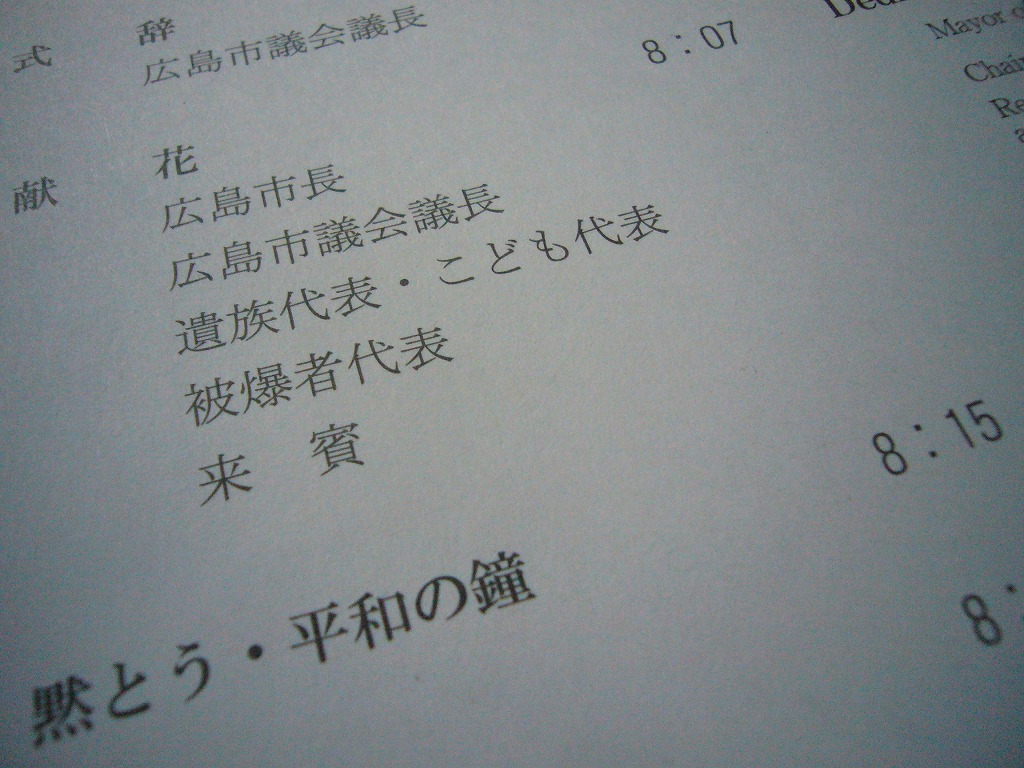 式 辞
広島市議会議長
献 花 8:07
広島市長
広島市議会議長
遺族代表・こども代表
被爆者代表
来 賓
黙とう・平和の鐘 8:15
8:
Mayor